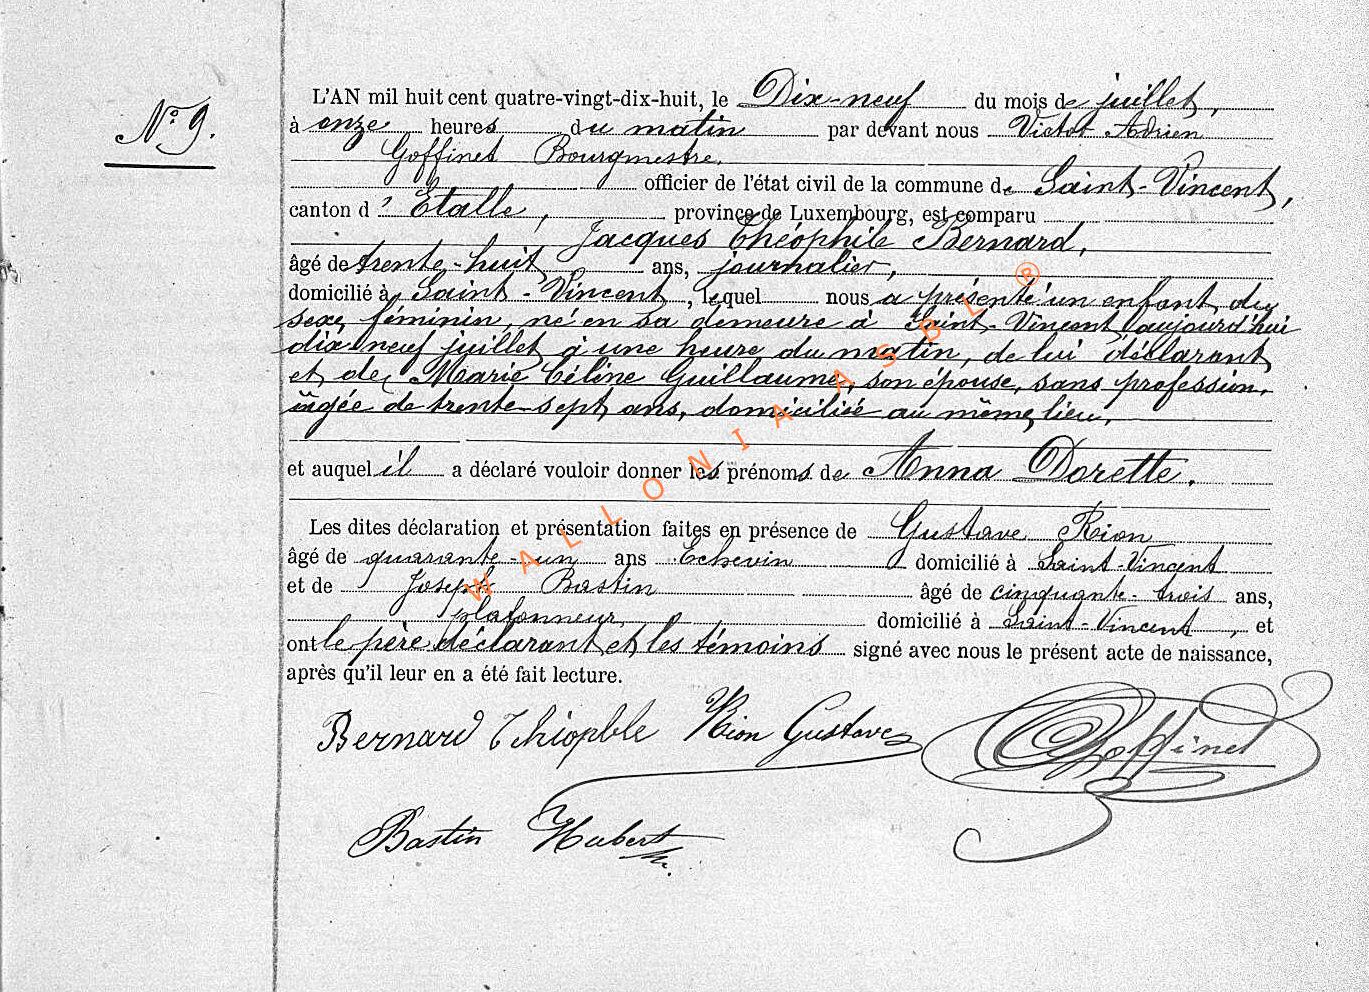 N° 9.
L'AN mil huit cent quatre-vingt-dix-huit, le Dix-neuf du mois de juillet,
à onze heures du matin par devant nous Victor Adrien
Goffinet Bourgmestre.
officier de l'état civil de la commune de Saint-Vincent,
canton d'Etalle, province de Luxembourg, est comparu
Jacques Théophile Bernard,
âgé de trente-huit ans, journalier,
domicilié à Saint-Vincent, lequel nous a présenté un enfant du
sexe féminin, né en sa demeure à Saint-Vincent aujourd'hui
dix neuf juillet à une heure du matin, de lui déclarant
et de Marie Céline Guillaume, son épouse, sans profession,
âgée de trente-sept ans, domiciliée au même lieu,
et auquel il a déclaré vouloir donner les prénoms de Anna Dorette.
Les dites déclaration et présentation faites en présence de Gustave Rion
âgé de quarante-un ans Echevin domicilié à Saint-Vincent
et de Joseph Bastin âgé de cinquante-trois ans,
plafonneur domicilié à Saint-Vincent, et
ont le père déclarant et les témoins signé avec nous le présent acte de naissance,
après qu'il leur en a été fait lecture.
Bernard Thiophle Rion Gustave Goffinet
Bastin Hubert
WALLONIA ASBL ®